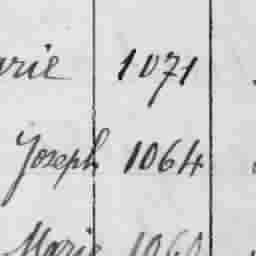 arie 1071
Joseph 1064
Marie 1060